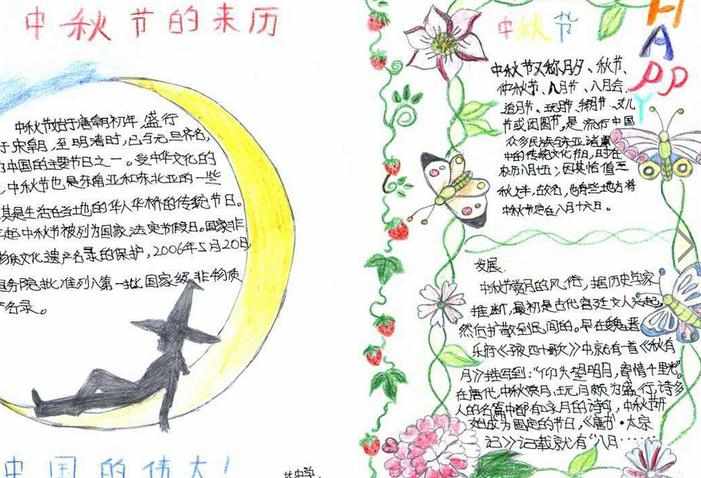 中秋节的来历
中秋节始于唐朝初年，盛行
于宋朝，至明清时，已与元旦齐名，
中国的主要节日之一。受中华文化的
，中秋节也是东南亚和东北亚的一些
其是生活在当地的华人华桥的传统节日。
起中秋节被列为国家法定节假日。国家非
物质文化遗产名录的保护，2006年5月20日
务院批准列入第一批国家级非物质
名录。
中国的伟大！
中秋节
HAPPY
中秋节又称月夕、秋节、
仲秋节、八月节、八月会、
追月节、玩月节、拜月节、女儿
节或团圆节，是流行中国
众多民族与东亚诸
中的传统文化节日，时在
农历八月十五；因其恰值三
秋之半，故名，也有些地方将
中秋节定在八月十六。
发展：
中秋节赏月的风俗，据历史学家
推断，最初是古代宫廷文人兴起，
然后扩散到民间的。早在魏晋
乐府《子夜四十歌》中就有首《秋有
月》描写到："仰头望明月，寄情千里光"。
在唐代，中秋赏月、玩月颇为盛行，许多
人的名篇中都有咏月的诗句，中秋节开
始成为固定的节日，《唐书·太宗
记》记载就有"八月……